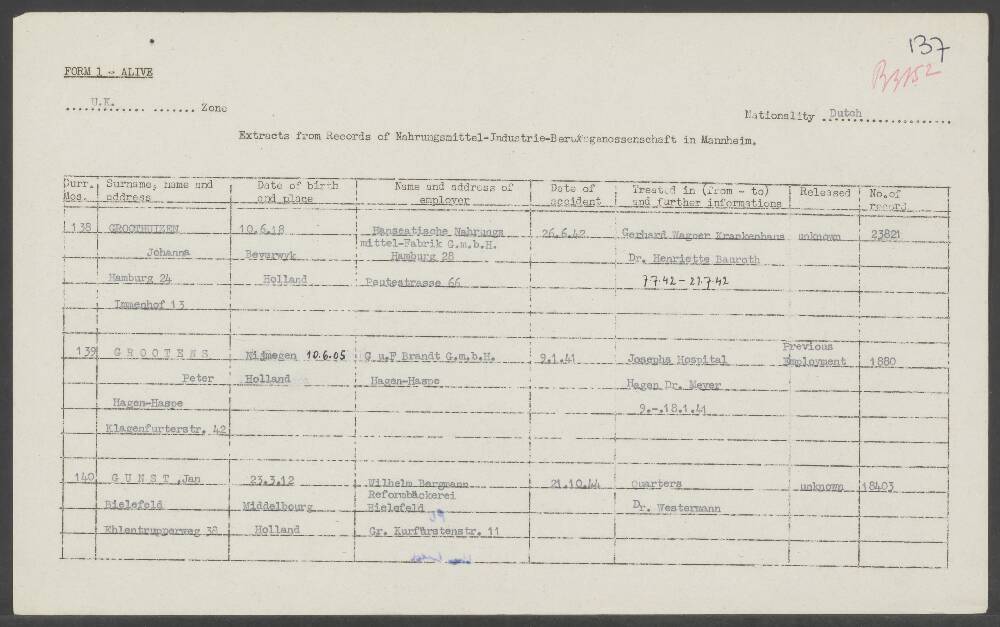 137
FORM 1 - ALIVE
U.K. Zone
Nationality Dutch
Extracts from Records of Nahrungsmittel-Industrie-Berufsgenossenschaft in Mannheim.
Curr. Nos. Surname, name and address Date of birth and place Name and address of employer Date of accident Treated in (from - to) and further informations Released No.of record.
138 GROOTHUIZEN 10.6.18 Hanseatische Nahrungs 26.6.42 Gerhard Wagner Krankenhaus unknown 23821
mittel-Fabrik G.m.b.H.
Johanna Beverwyk Hamburg 28 Dr. Henriette Bauroth
Hamburg 24 Holland Peutestrasse 66 7.7.42 - 27.7.42
Immenhof 13
Previous
139 GROOTENS Nijmegen 10.6.05 G u.F Brandt G.m.b.H. 9.1.41 Josephs Hospital Employment 1880
Peter Holland Hagen-Haspe Hagen Dr. Meyer
Hagen-Haspe 9.-.18.1.41
Klagenfurterstr. 42
140 GUNST,Jan 23.3.12 Wilhelm Bergmann 21.10.44 Quarters unknown 18403
Reformbäckerei
Bielefeld Middelbourg Bielefeld Dr. Westermann
Ehlentrupperweg 38 Holland Gr. Kurfürstenstr. 11